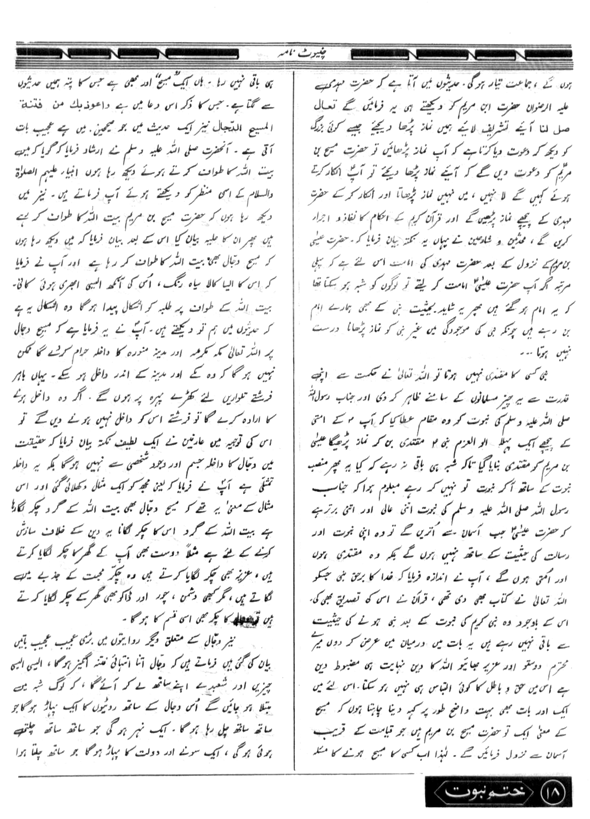 چنیوٹ نامہ
ہوں گے ، جماعت تیار ہوگی۔ حدیثوں میں آتا ہے کہ حضرت مہدی
علیہ الرضوان حضرت ابن مریم کو دیکھتے ہی یہ فرمائیں گے تعال
صل لنا آیئے تشریف لائیے ہمیں نماز پڑھا دیجئے جیسے کوئی بزرگ
کو دیکھ کر دعوت دیا کرتا ہے کہ آپ نماز پڑھائیں تو حضرت مسیح بن
مریم کو دعوت دیں گے کہ آیئے نماز پڑھا دیجئے تو آپ انکار کرتے
ہوئے کہیں گے لا نہیں ، میں نہیں نماز پڑھاتا اور انکار کر کے
مہدی کے پیچھے نماز پڑھیں گے اور قرآن کریم کے احکام کا نفاذ و اجراء
کریں گے ، محدثین و شارحین نے یہاں یہ نکتہ بیان فرمایا۔ کہ حضرت عیسٰی
بن مریم کے نزول کے بعد حضرت مہدی کی امامت اس لئے ہے کہ پہلی
مرتبہ اگر آپ حضرت عیسٰی امامت کر لیتے تو لوگوں کو شبہ ہو سکتا تھا
کہ یہ امام ہو گئے ہیں پھر یہ شاید بحیثیت نبی کے بھی ہمارے امام
بن رہے ہیں چونکہ نبی کی موجودگی میں غیر نبی کو نماز پڑھانا درست
نہیں ہوتا ...
نبی کسی کا مقتدی نہیں ہوتا تو اللہ تعالیٰ نے حکمت سے اپنے
قدرت سے یہ چیز مسلمانوں کے سامنے ظاہر کر دی۔ اور جناب رسول اللہ
صلی اللہ علیہ وسلم کی نبوت کو وہ مقام عطا کیا کہ آپ کے امتی
کے پیچھے ایک پہلا اولو العزم نبی مقتدی بن کو نماز پڑھیگا عیسٰی
بن مریم کو مقتدی بنایا گیا تاکہ شبہ ہی باقی نہ رہے کہ کیا یہ پھر منصب
نبوت کے ساتھ آ کر نبوت تو نہیں کر رہے معلوم ہوا کہ جناب
رسول اللہ صلی اللہ علیہ وسلم کی نبوت اتنی عالی اور اتنی برتر ہے
کہ حضرت عیسٰی جب آسمان سے اتریں گے تو وہ اپنی نبوت اور
رسالت کی حیثیت کے ساتھ نہیں ہوں گے بلکہ وہ مقتدی ہوں
اور امتی ہوں گے ، آپ نے اندازہ فرمایا کہ خدا کا برحق نبی جسکو
اللہ تعالیٰ نے کتاب بھی دی تھی ، قرآن نے اس کی تصدیق بھی کی،
اس کے باوجود وہ نبی کریم کی نبوت کے بعد نبی ہونے کی حیثیت
سے باقی نہیں رہے ہیں یہ بات میں درمیان میں عرض کر دوں میرے
محترم دوستو اور عزیز بھائیو اللہ کا دین نہایت ہی مضبوط دین
ہے اس میں حق و باطل کا کوئی التباس ہی نہیں ہو سکتا۔ اس لئے میں
ایک اور بات بھی بہت واضح طور پر کہہ دینا چاہتا ہوں کہ مسیح
کے معنی ایک تو حضرت مسیح بن مریم ہیں جو قیامت کے قریب
آسمان سے نزول فرمائیں گے ۔ لہٰذا اب کسی کا مسیح ہونے کا مسئلہ
ہی باقی نہیں رہا ۔ ہاں ایک "مسیح" اور بھی ہے جس کا پتہ ہمیں حدیثوں
سے لگتا ہے۔ جس کا ذکر اس دعا میں ہے واعوذبك من فتنة
المسیح الدجال نیز ایک حدیث میں جو صحیحین میں ہے عجیب بات
آتی ہے ۔ آنحضرت صلی اللہ علیہ وسلم نے ارشاد فرمایا کہ گویا کہ میں
بیت اللہ کا طواف کرتے ہوئے دیکھ رہا ہوں انبیاء علیہم الصلوٰۃ
والسلام کے اسی منظر کو دیکھتے ہوئے آپ فرماتے ہیں۔ نیز میں
دیکھ رہا ہوں کہ حضرت مسیح بن مریم بیت اللہ کا طواف کر رہے
ہیں پھر ان کا حلیہ بیان کیا اس کے بعد بیان فرمایا کہ میں دیکھ رہا ہوں
کہ مسیح دجال بھی بیت اللہ کا طواف کر رہا ہے اور آپ نے فرمایا
کہ اس کا ایسا کالا سیاہ رنگ ، اس کی آنکھ ایسی ابھری ہوئی کانی۔
بیت اللہ کے طواف پر طلبہ کو اشکال پیدا ہوگا وہ اشکال یہ ہے
کہ حدیثوں میں ہم تو دیکھتے ہیں۔ آپ نے یہ فرمایا ہے کہ مسیح دجال
پر اللہ تعالیٰ مکہ مکرمہ اور مدینہ منورہ کا داخلہ حرام کر دے گا ممکن
نہیں ہوگا کہ وہ مکے اور مدینہ کے اندر داخل ہو سکے۔ یہاں باہر
فرشتے تلواریں لئے کھڑے پہرہ پر ہوں گے ۔ اگر وہ داخل ہونے
کا ارادہ کرے گا تو فرشتے اس کو داخل نہیں ہونے دیں گے تو
اس کی توجیہ میں عارفین نے ایک لطیف نکتہ بیان فرمایا کہ حقیقت
میں دجال کا داخلہ جسم اور وجود شخصی سے نہیں ہوگا بلکہ یہ داخلہ
تمثیلی ہے آپ نے فرمایا کہ یعنی مجھ کو ایک مثال دکھلائی گئی اور اس
مثال کے معنی یہ تھے کہ مسیح دجال بھی بیت اللہ کے گرد چکر لگا رہا
ہے بیت اللہ کے گرد اس کا چکر لگانا یہ دین کے خلاف سازش
کرنے کے لئے ہے مثلاً دوست بھی آپ کے گھر کا چکر لگایا کرتے
ہیں ، عزیز بھی چکر لگایا کرتے ہیں وہ چکر محبت کے جذبے میں
لگاتے ہیں ، مگر کبھی دشمن ، چور اور ڈاکو بھی گھر کے چکر لگایا کرتے
ہیں کا چکر بھی اسی قسم کا ہوگا۔
نیز دجال کے متعلق دیگر روایتوں میں بڑی عجیب عجیب باتیں
بیان کی گئی ہیں فرماتے ہیں کہ دجال اتنا انتہائی فتنہ انگیز ہوگا ، ایسی ایسی
چیزیں اور شعبدے اپنے ساتھ لے کر آئے گا ، کہ لوگ شبہ میں
مبتلا ہو جائیں گے اس دجال کے ساتھ روٹیوں کا ایک پہاڑ ہوگا جو
ساتھ ساتھ چل رہا ہوگا۔ ایک نہر ہو گی جو ساتھ ساتھ چلتی
ہوئی ہوگی ، ایک سونے اور دولت کا پہاڑ ہوگا جو ساتھ چلتا ہوا
ختم نبوت
۱۸